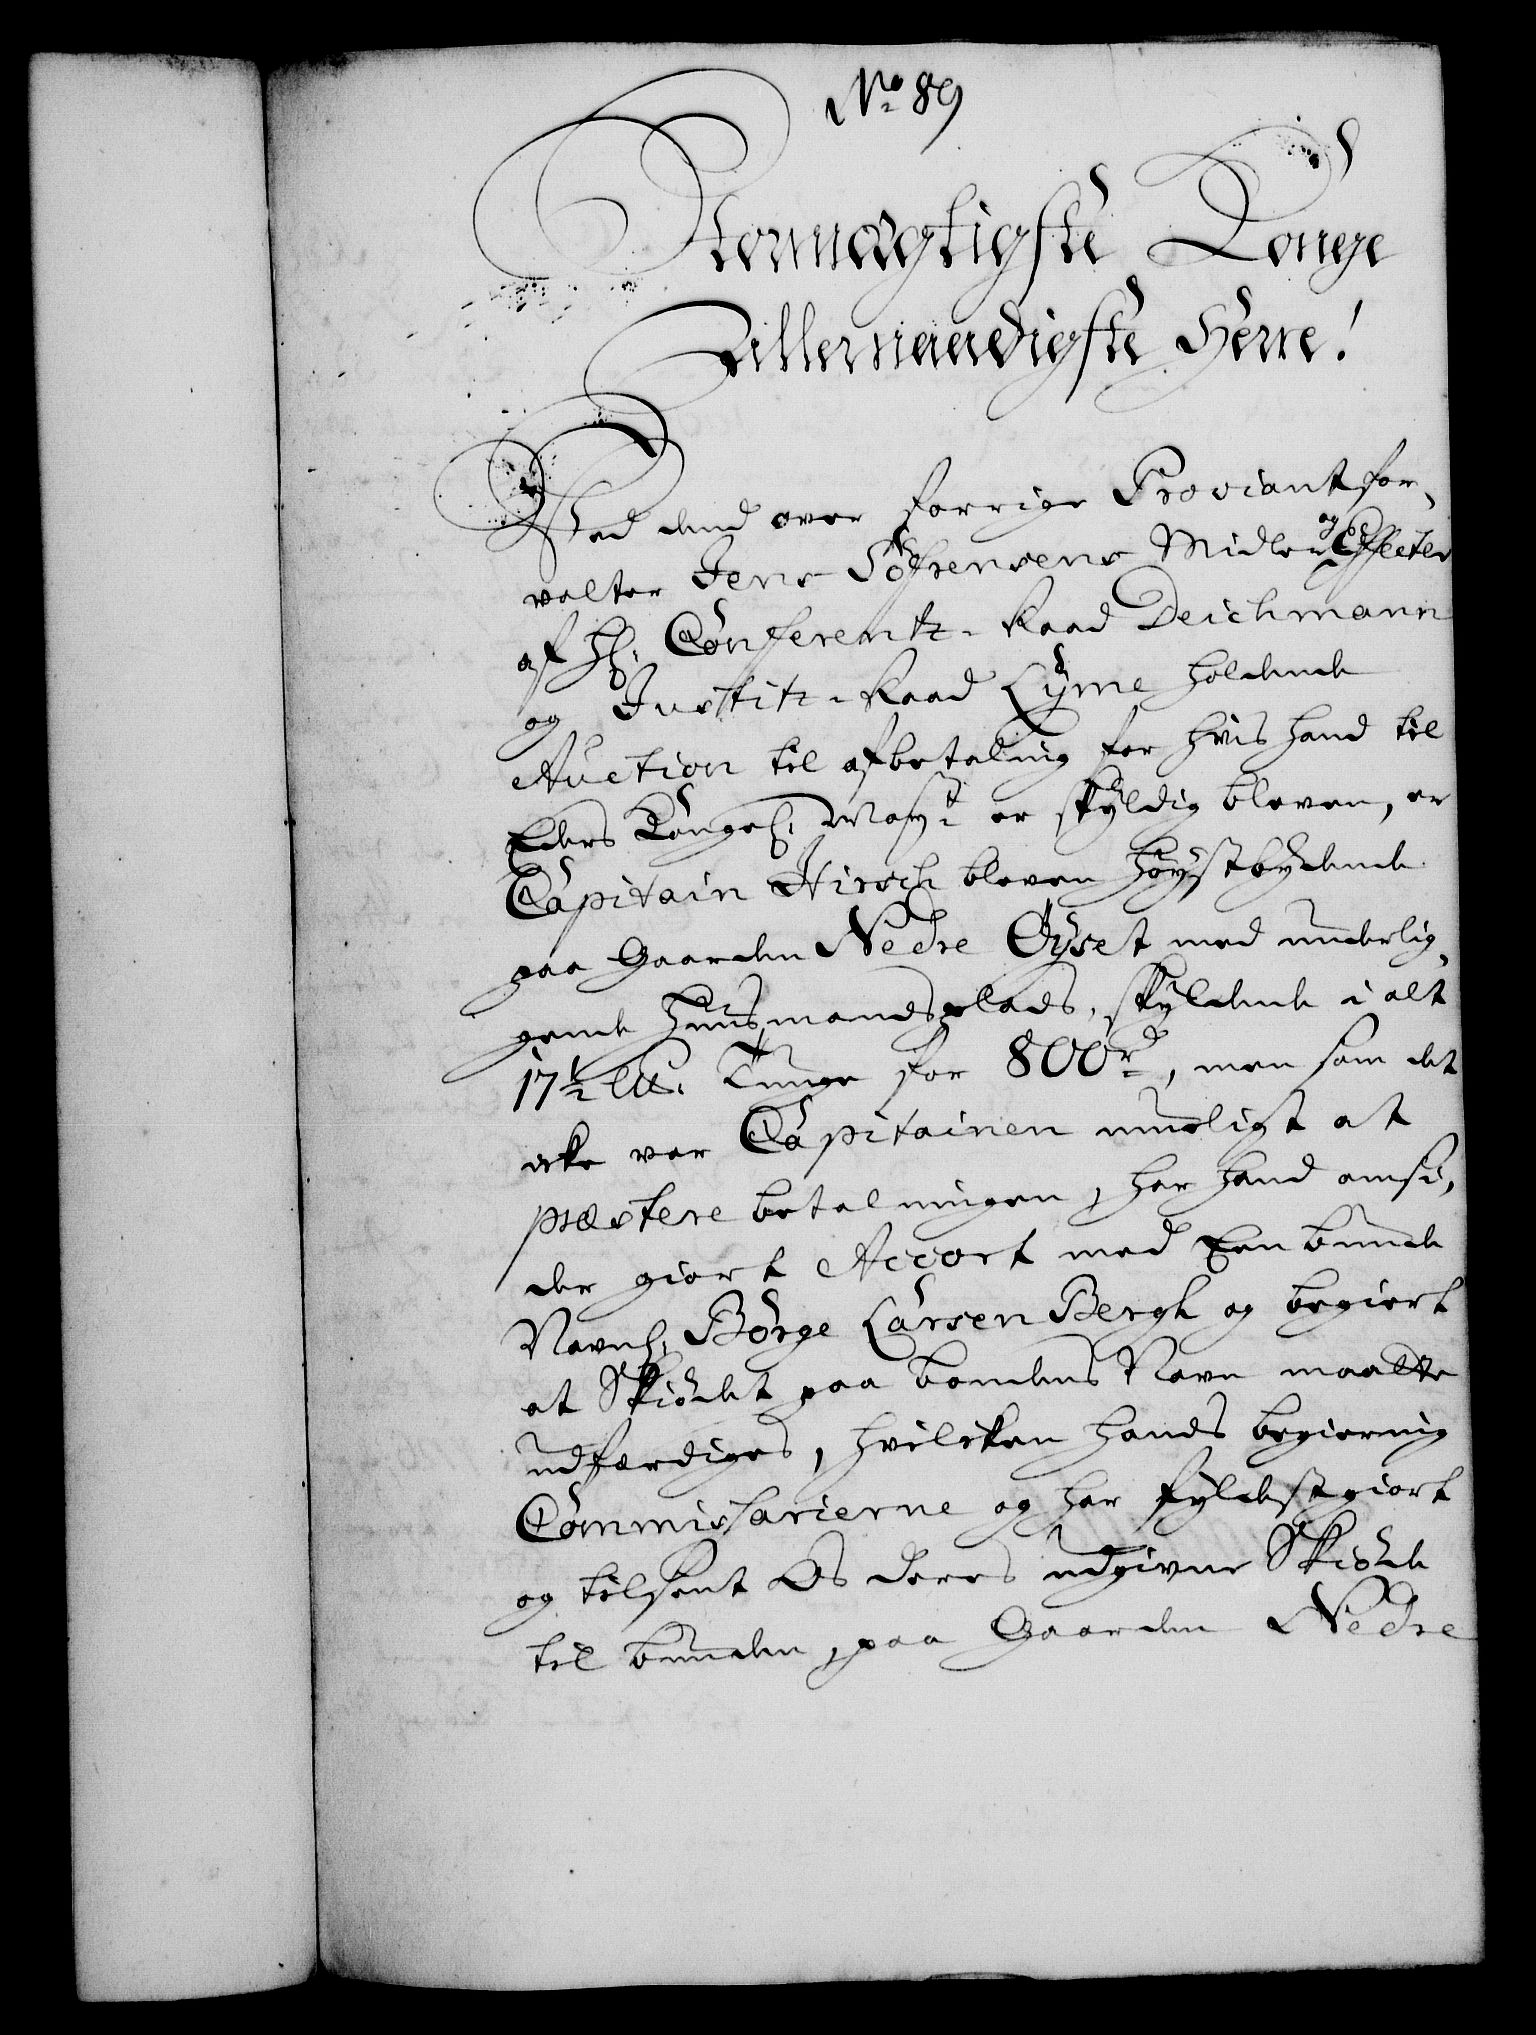 No 89
Stormægtigste Konge
Allernaadigste Herre!
Ved dend over forrige Proviantfor-
valter Jens Söfrensens Midler og Effecter
af Hr. Conferentz-Raad Deichmann
og Justitz-Raad Lyme holdende
Auction til afbetaling for hvis hand til
Eders Kongel. Mayt er skyldig bleven, er
Capitain Hirsch bleven höystbydende
paa Gaarden Nedre Öyset med underlig-
gende Huusmandsplads, skyldende i alt
17½ L℔. Tunge for 800 rd, men som det
icke var Capitainen mueligt at
præstere betalningen, har hand omsi-
der giort Accort med Een bunde
Navnl. Börge Larsen Bergh og begiert
at Skiödet paa bondens Navn maatte
udfærdiges, hvilcken hands begiering
Commissarierne og har fyldestgiort
og tilsent Os deres udgivne Skiöde
til bunden, paa Gaarden Nedre